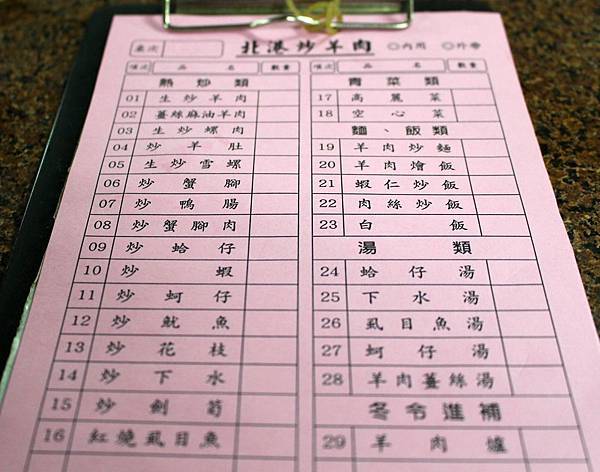 北港炒羊肉
桌次 ○內用 ○外帶
項次 品名 數量
熱炒類
01 生炒羊肉
02 薑絲麻油羊肉
03 生炒螺肉
04 炒羊肚
05 生炒雪螺
06 炒蟹腳
07 炒鴨腸
08 炒蟹腳肉
09 炒蛤仔
10 炒蝦
11 炒蚵仔
12 炒魷魚
13 炒花枝
14 炒下水
15 炒劍筍
16 紅燒虱目魚
項次 品名 數量
青菜類
17 高麗菜
18 空心菜
麵、飯類
19 羊肉炒麵
20 羊肉燴飯
21 蝦仁炒飯
22 肉絲炒飯
23 白飯
湯類
24 蛤仔湯
25 下水湯
26 虱目魚湯
27 蚵仔湯
28 羊肉薑絲湯
冬令進補
29 羊肉爐